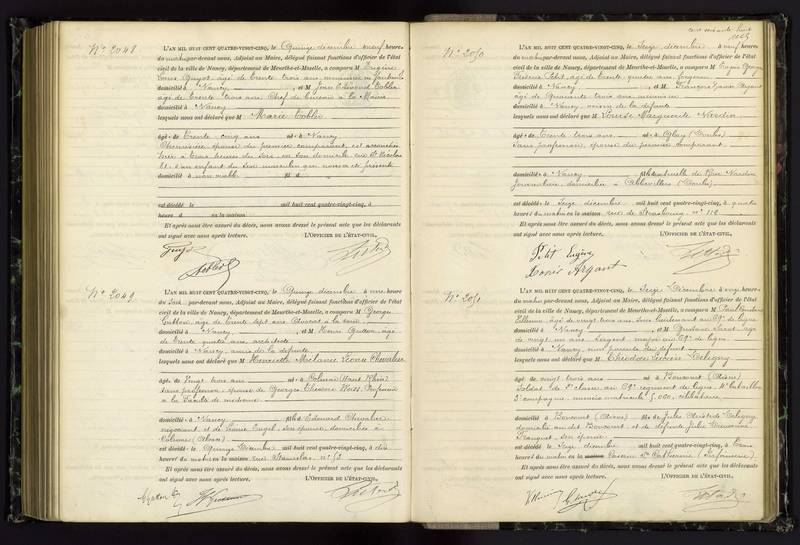 N° 2048
L'AN MIL HUIT CENT QUATRE-VINGT-CINQ, le Quinze décembre à neuf heures
du matin par-devant nous, Adjoint au Maire, délégué faisant fonctions d'officier de l'état
civil de la ville de Nancy, département de Meurthe-et-Moselle, a comparu M Eugène
Louis Guyot, âgé de trente trois ans
domicilié à Nancy, et M
âgé de trente trois ans, Chef de bureau à la Mairie
domicilié à Nancy
lesquels nous ont déclaré que M Marie Toblie
âgé de trente cinq ans né à Nancy
épouse du premier comparant, est accouchée
hier à trois heures du soir, en son domicile, rue St Nicolas
d'un enfant du sexe masculin qui nous a été présenté
domicilié à non viable
est décédé le mil huit cent quatre-vingt-cinq, à
heures du en la maison
Et après nous être assuré du décès, nous avons dressé le présent acte que les déclarants
ont signé avec nous après lecture. L'OFFICIER DE L'ÉTAT-CIVIL,
N° 2049
L'AN MIL HUIT CENT QUATRE-VINGT-CINQ, le Quinze décembre à une heure
du soir par-devant nous, Adjoint au Maire, délégué faisant fonctions d'officier de l'état
civil de la ville de Nancy, département de Meurthe-et-Moselle, a comparu M Georges
âgé de trente sept ans
domicilié à Nancy, et M Henri Gutton, âgé
de trente quatre ans, architecte
domicilié à Nancy, amis de la défunte
lesquels nous ont déclaré que M Henriette Mélanie Léonie Chevalier
âgé de vingt trois ans né à Colmar (Haut Rhin)
sans profession, épouse de Georges Weiss, Professeur
à la Faculté de médecine
domicilié à Nancy fille d'Edouard Chevalier
négociant et de Louise Engel, son épouse, domiciliés à
Colmar (Alsace)
est décédé le Quinze décembre mil huit cent quatre-vingt-cinq, à dix
heures du matin en la maison rue Stanislas, n°
Et après nous être assuré du décès, nous avons dressé le présent acte que les déclarants
ont signé avec nous après lecture. L'OFFICIER DE L'ÉTAT-CIVIL,
N° 2050
L'AN MIL HUIT CENT QUATRE-VINGT-CINQ, le Seize décembre à neuf heures
du matin par-devant nous, Adjoint au Maire, délégué faisant fonctions d'officier de l'état
civil de la ville de Nancy, département de Meurthe-et-Moselle, a comparu M Eugène George
Petit, âgé de trente
domicilié à Nancy, et M François Louis Argant
âgé de Quarante trois ans
domicilié à Nancy, voisin de la défunte
lesquels nous ont déclaré que M Louise Marguerite Nardin
âgé de trente trois ans né à Glay (Doubs)
sans profession, épouse du premier comparant
domicilié à Nancy fille naturelle de Nardin
journalière, domiciliée à Abbévillers (Doubs)
est décédé le Seize décembre mil huit cent quatre-vingt-cinq, à quatre
heures du matin en la maison rue de Strasbourg, n° 112
Et après nous être assuré du décès, nous avons dressé le présent acte que les déclarants
ont signé avec nous après lecture. L'OFFICIER DE L'ÉTAT-CIVIL,
Petit Eugène
Louis Argant
N° 2051
L'AN MIL HUIT CENT QUATRE-VINGT-CINQ, le Seize Décembre à onze heures
du matin par-devant nous, Adjoint au Maire, délégué faisant fonctions d'officier de l'état
civil de la ville de Nancy, département de Meurthe-et-Moselle, a comparu M Paul
âgé de vingt trois ans, Sous lieutenant au 69e de ligne
domicilié à Nancy, et M Gustave âgé
de vingt un ans, Sergent major au 69e de ligne
domicilié à Nancy, non parents du défunt
lesquels nous ont déclaré que M Théodore
âgé de vingt trois ans né à Boncourt (Aisne)
Soldat de 2e classe au 69e régiment de ligne, 4e bataillon
2e compagnie, numéro matricule 5.000, célibataire
domicilié à Boncourt (Aisne) fils de Jules
domicilié au dit Boncourt et de défunte Julie
son épouse
est décédé le Seize décembre mil huit cent quatre-vingt-cinq, à trois
heures du matin en la maison Caserne Ste Catherine (Infirmerie)
Et après nous être assuré du décès, nous avons dressé le présent acte que les déclarants
ont signé avec nous après lecture. L'OFFICIER DE L'ÉTAT-CIVIL,